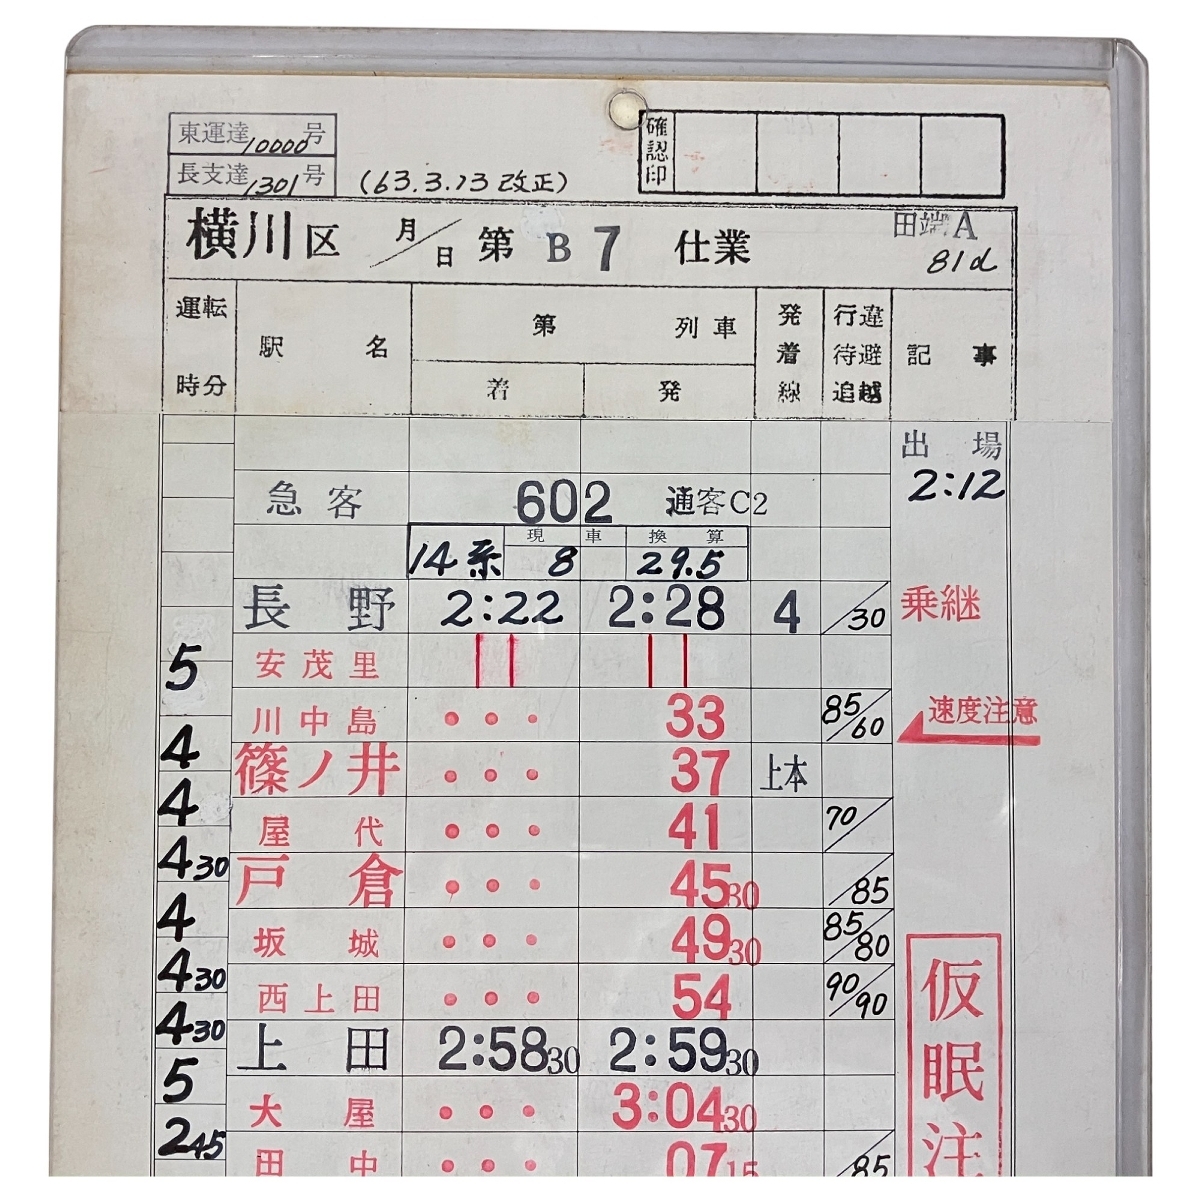 東運達10000号
長支達1301号
(63.3.13改正)
確認印
横川区 月/日 第 B 7 仕業 田端A
81d
運転時分 駅名 第 列車 着 発 発着線 行違待避追越 記事
出場
2:12
急客 602 通客C2
14系 現車 8 換算 29.5
長野 2:22 2:28 4 /30 乗継
5
安茂里
川中島 33 85/60 速度注意
4
篠ノ井 37 上本
4
屋代 41 70/
4 30
戸倉 45 30 /85
4
坂城 49 30 85/80
4 30
西上田 54 90/90
4 30
上田 2:58 30 2:59 30
5
大屋 3:04 30
2 45
田中 07 15 /85
仮眠注